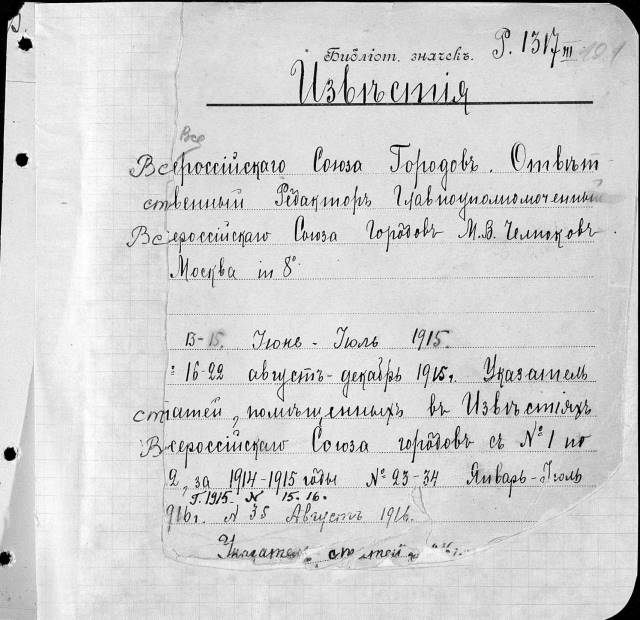 Библіот. значекъ. Р. 1317 III
Извѣстія
Все
Всероссійскаго Союза Городовъ. Отвѣт
ственный Редакторъ Главноуполномоченный
Всероссійскаго Союза Городовъ М.В. Челноковъ.
Москва in 8°
13-15. Іюнь - Іюль 1915.
16-22 августъ - декабрь 1915г. Указатель
статей, помѣщенныхъ въ Извѣстіяхъ
Всероссійскаго Союза городовъ съ № 1 по
2, за 1914-1915 годы № 23-34 Январь - Іюль
Г. 1915. N 15. 16.
916г. N 35 Августъ 1916.
Указател статей